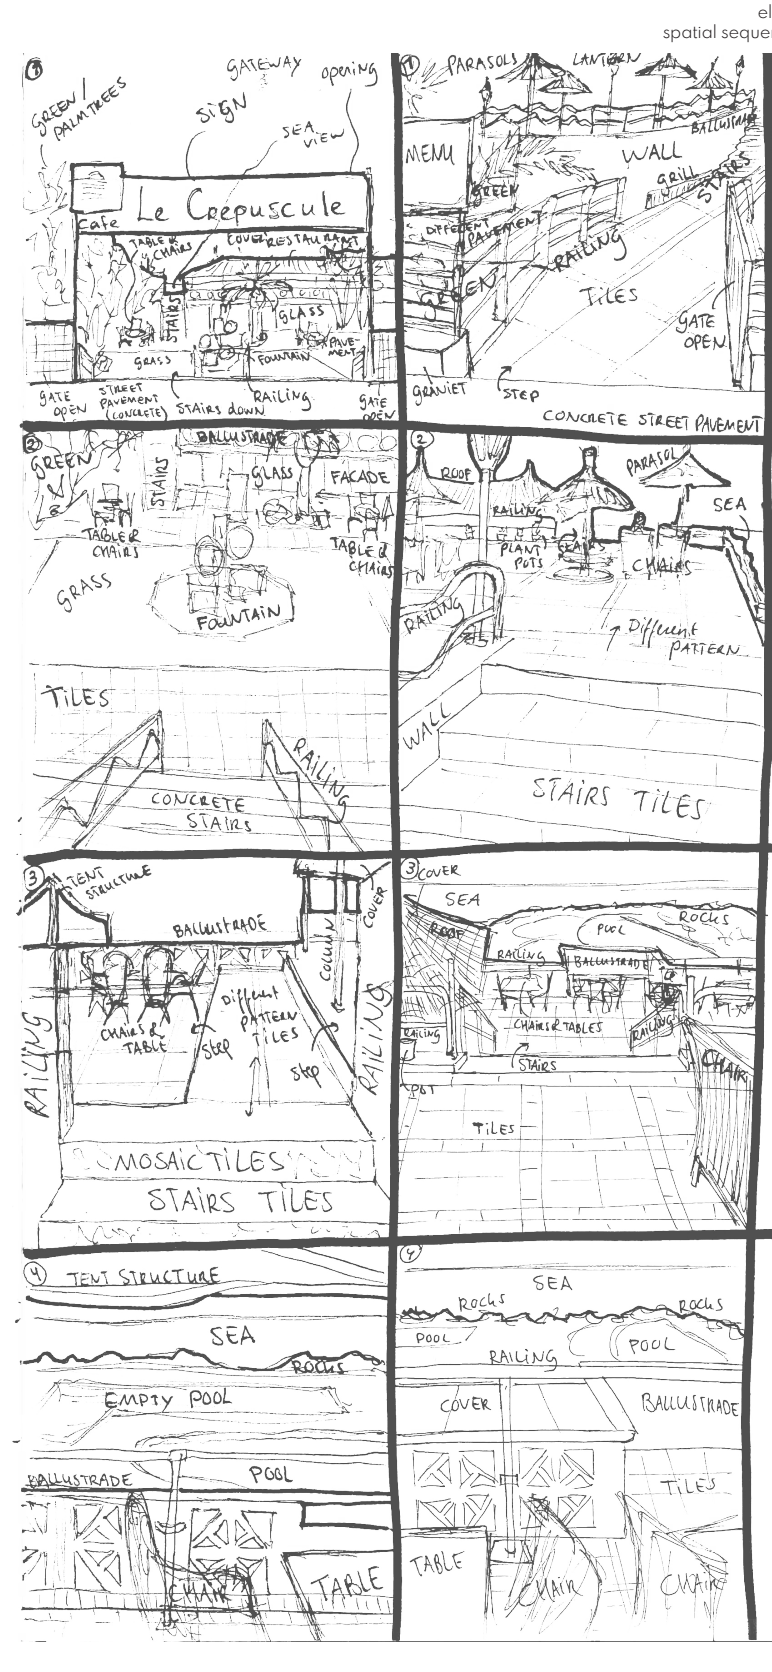 el
spatial seque
1
GREEN /
PALMTREES
GATEWAY
opening
SIGN
SEA
VIEW
Cafe
Le Crepuscule
TABLE &
CHAIRS
COVER
RESTAURANT
STAIRS
GLASS
GRASS
FOUNTAIN
PAVE-
MENT
GATE
OPEN
STREET
PAVEMENT
(CONCRETE)
STAIRS down
RAILING
GATE
OPEN
1
PARASOLS
LANTERN
BALLUSTRAD
MENU
WALL
GRILL
STAIRS
GREEN
DIFFERENT
PAVEMENT
RAILING
GREEN
TILES
GATE
OPEN
GRANIET
STEP
CONCRETE STREET PAVEMENT
2
GREEN
BALLUSTRADE
STAIRS
GLASS
FACADE
TABLE &
CHAIRS
TABLE &
CHAIRS
GRASS
FOUNTAIN
TILES
RAILING
CONCRETE
STAIRS
2
ROOF
PARASOL
SEA
RAILING
PLANT
POTS
CHAIRS
CHAIRS
RAILING
Different
PATTERN
WALL
STAIRS TILES
3
TENT
STRUCTURE
COVER
BALLUSTRADE
COLUMN
CHAIRS &
TABLE
Different
PATTERN
TILES
Step
Step
RAILING
RAILING
MOSAIC TILES
STAIRS TILES
3
COVER
SEA
ROCKS
POOL
ROOF
RAILING
BALLUSTRADE
CHAIRS & TABLES
RAILING
RAILING
STAIRS
CHAIR
POT
TILES
4
TENT STRUCTURE
SEA
ROCKS
EMPTY POOL
BALLUSTRADE
POOL
CHAIR
TABLE
4
SEA
ROCKS
ROCKS
POOL
POOL
RAILING
COVER
BALLUSTRADE
TILES
TABLE
CHAIR
CHAIR